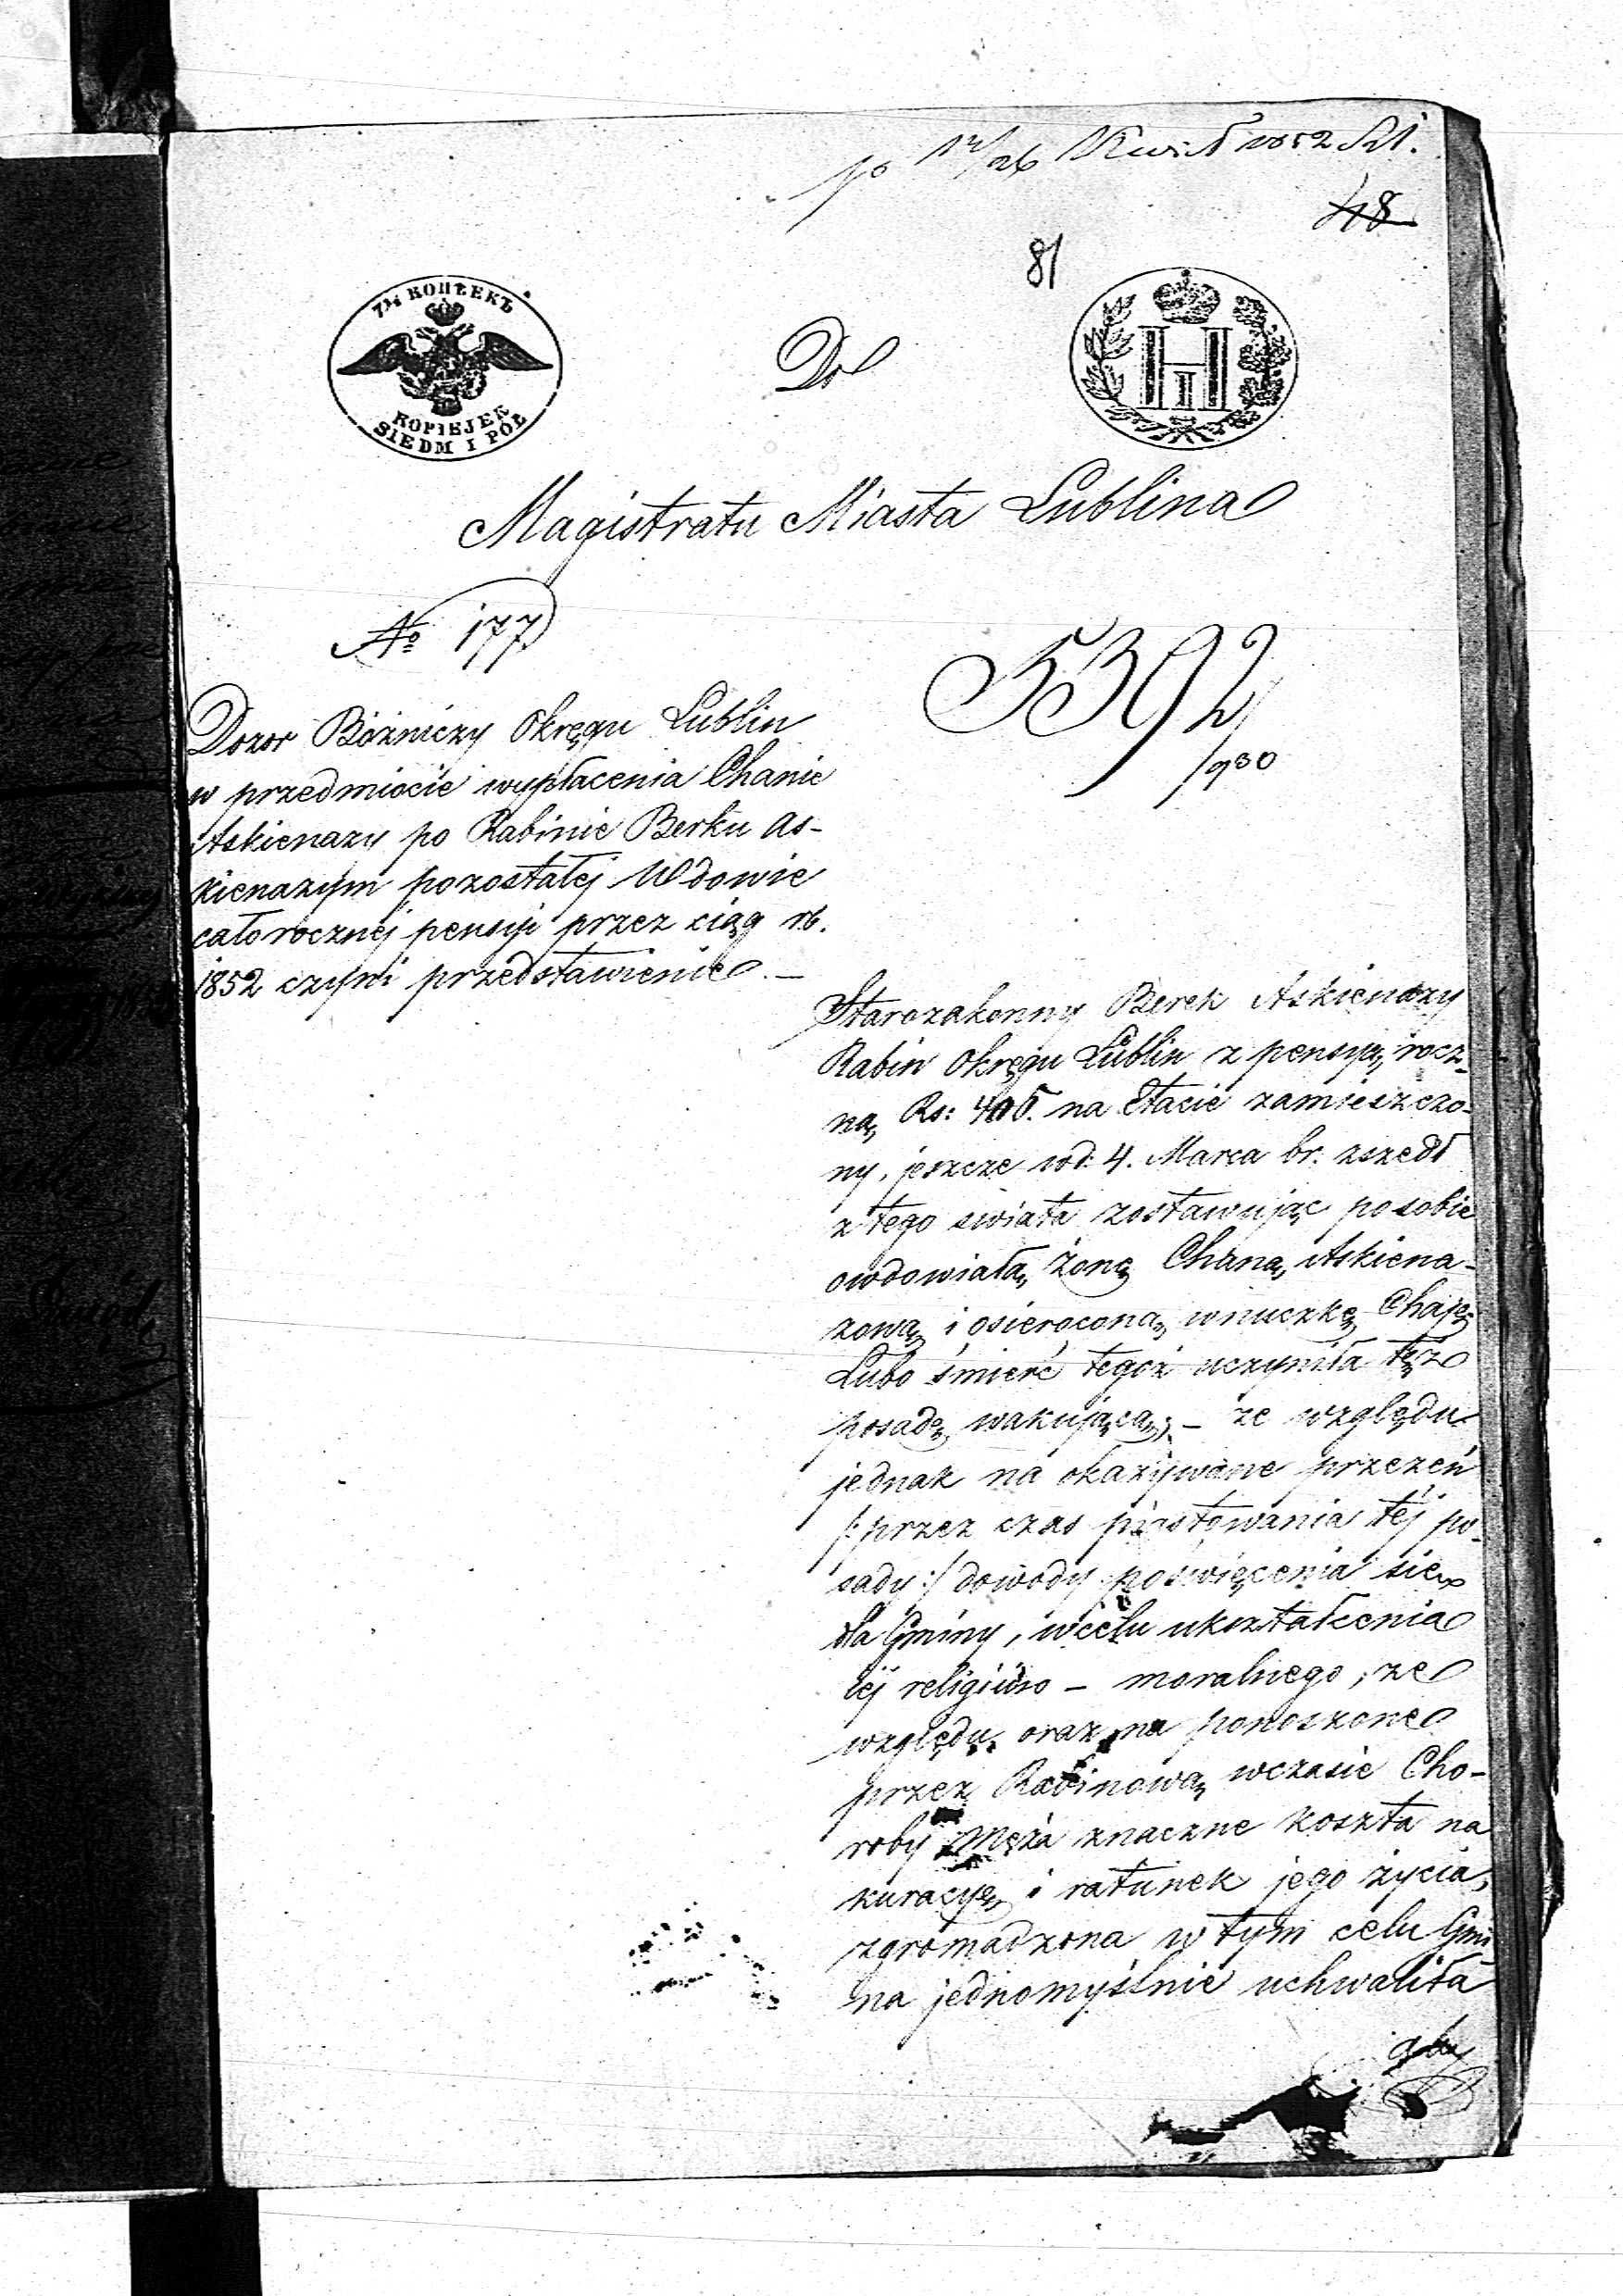 14/26 Kwiet 1852 Rt.
48
81
7½ КОПѢЕКЪ
KOPIEJEK
SIEDM I PÓŁ
Н I
Do
Magistratu Miasta Lublina
No 177
5392
/930
Dozor Bóżniczy Okręgu Lublin
w przedmiocie wypłacenia Chanie
Askienazy po Rabinie Berku As-
kienazym pozostałej Wdowie
całorocznéj pensyi przez ciąg rb.
1852 czyni przedstawienie. —
Starozakonny Berek Askienazy
Rabin Okręgu Lublin z pensyą rocz-
ną Rs: na Etacie zamieszczo-
ny, jeszcze wd. 4. Marca br. zszedł
z tego swiata zostawując po sobie
owdowiałą Żonę Chanę Askiena-
zową i osieroconą wnuczkę Chaję
Lubo śmierć tegoż uczyniła tęż
posadę wakującą; – ze względu
jednak na okazywane przezeń
/: przez czas piastowania téj po-
sady :/ dowody poświęcenia się
dla Gminy, w celu ukształcenia
téj religijno – moralnego, ze
względu oraz na ponoszone
przez Rabinową wczasie Cho-
roby Męża znaczne koszta na
kuracyę i ratunek jego życia,
zgromadzona w tym celu Gmi
na jednomyślnie uchwaliła
aby